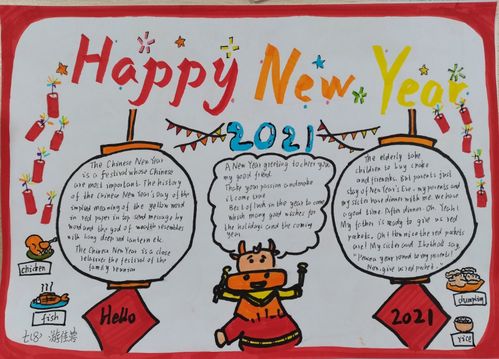 Happy New Year
2021
The Chinese New Year
is a festival whose Chinese
are most important. The history
of the Chinese New Year's Day of the
simplest meaning of the yellow word
in red paper in top send message by
word and the god of wealth resembles
with long deep red lantern etc.
The Chinese New Year is a close
relatives the festival of the
family reunion
A New Year greeting to cheer you
my good friend.
Take your passion and make
it come true
Best of luck in the year to come
which many good wishes for
the holidays and the coming
year.
The elderly take
children to buy cake
and firearms. But parents first
day of New Year's Eve. my parents and
my sister have dinner with me. We have
a good time. After dinner. Oh. Yeah!
My father is ready to give us red
packets. Oh! How nice the red packets
are! My sister and I
year round to my parents!
Now, give us red packet.
chicken
fish
Hello
2021
dumpling
rice
七(8) 游佳